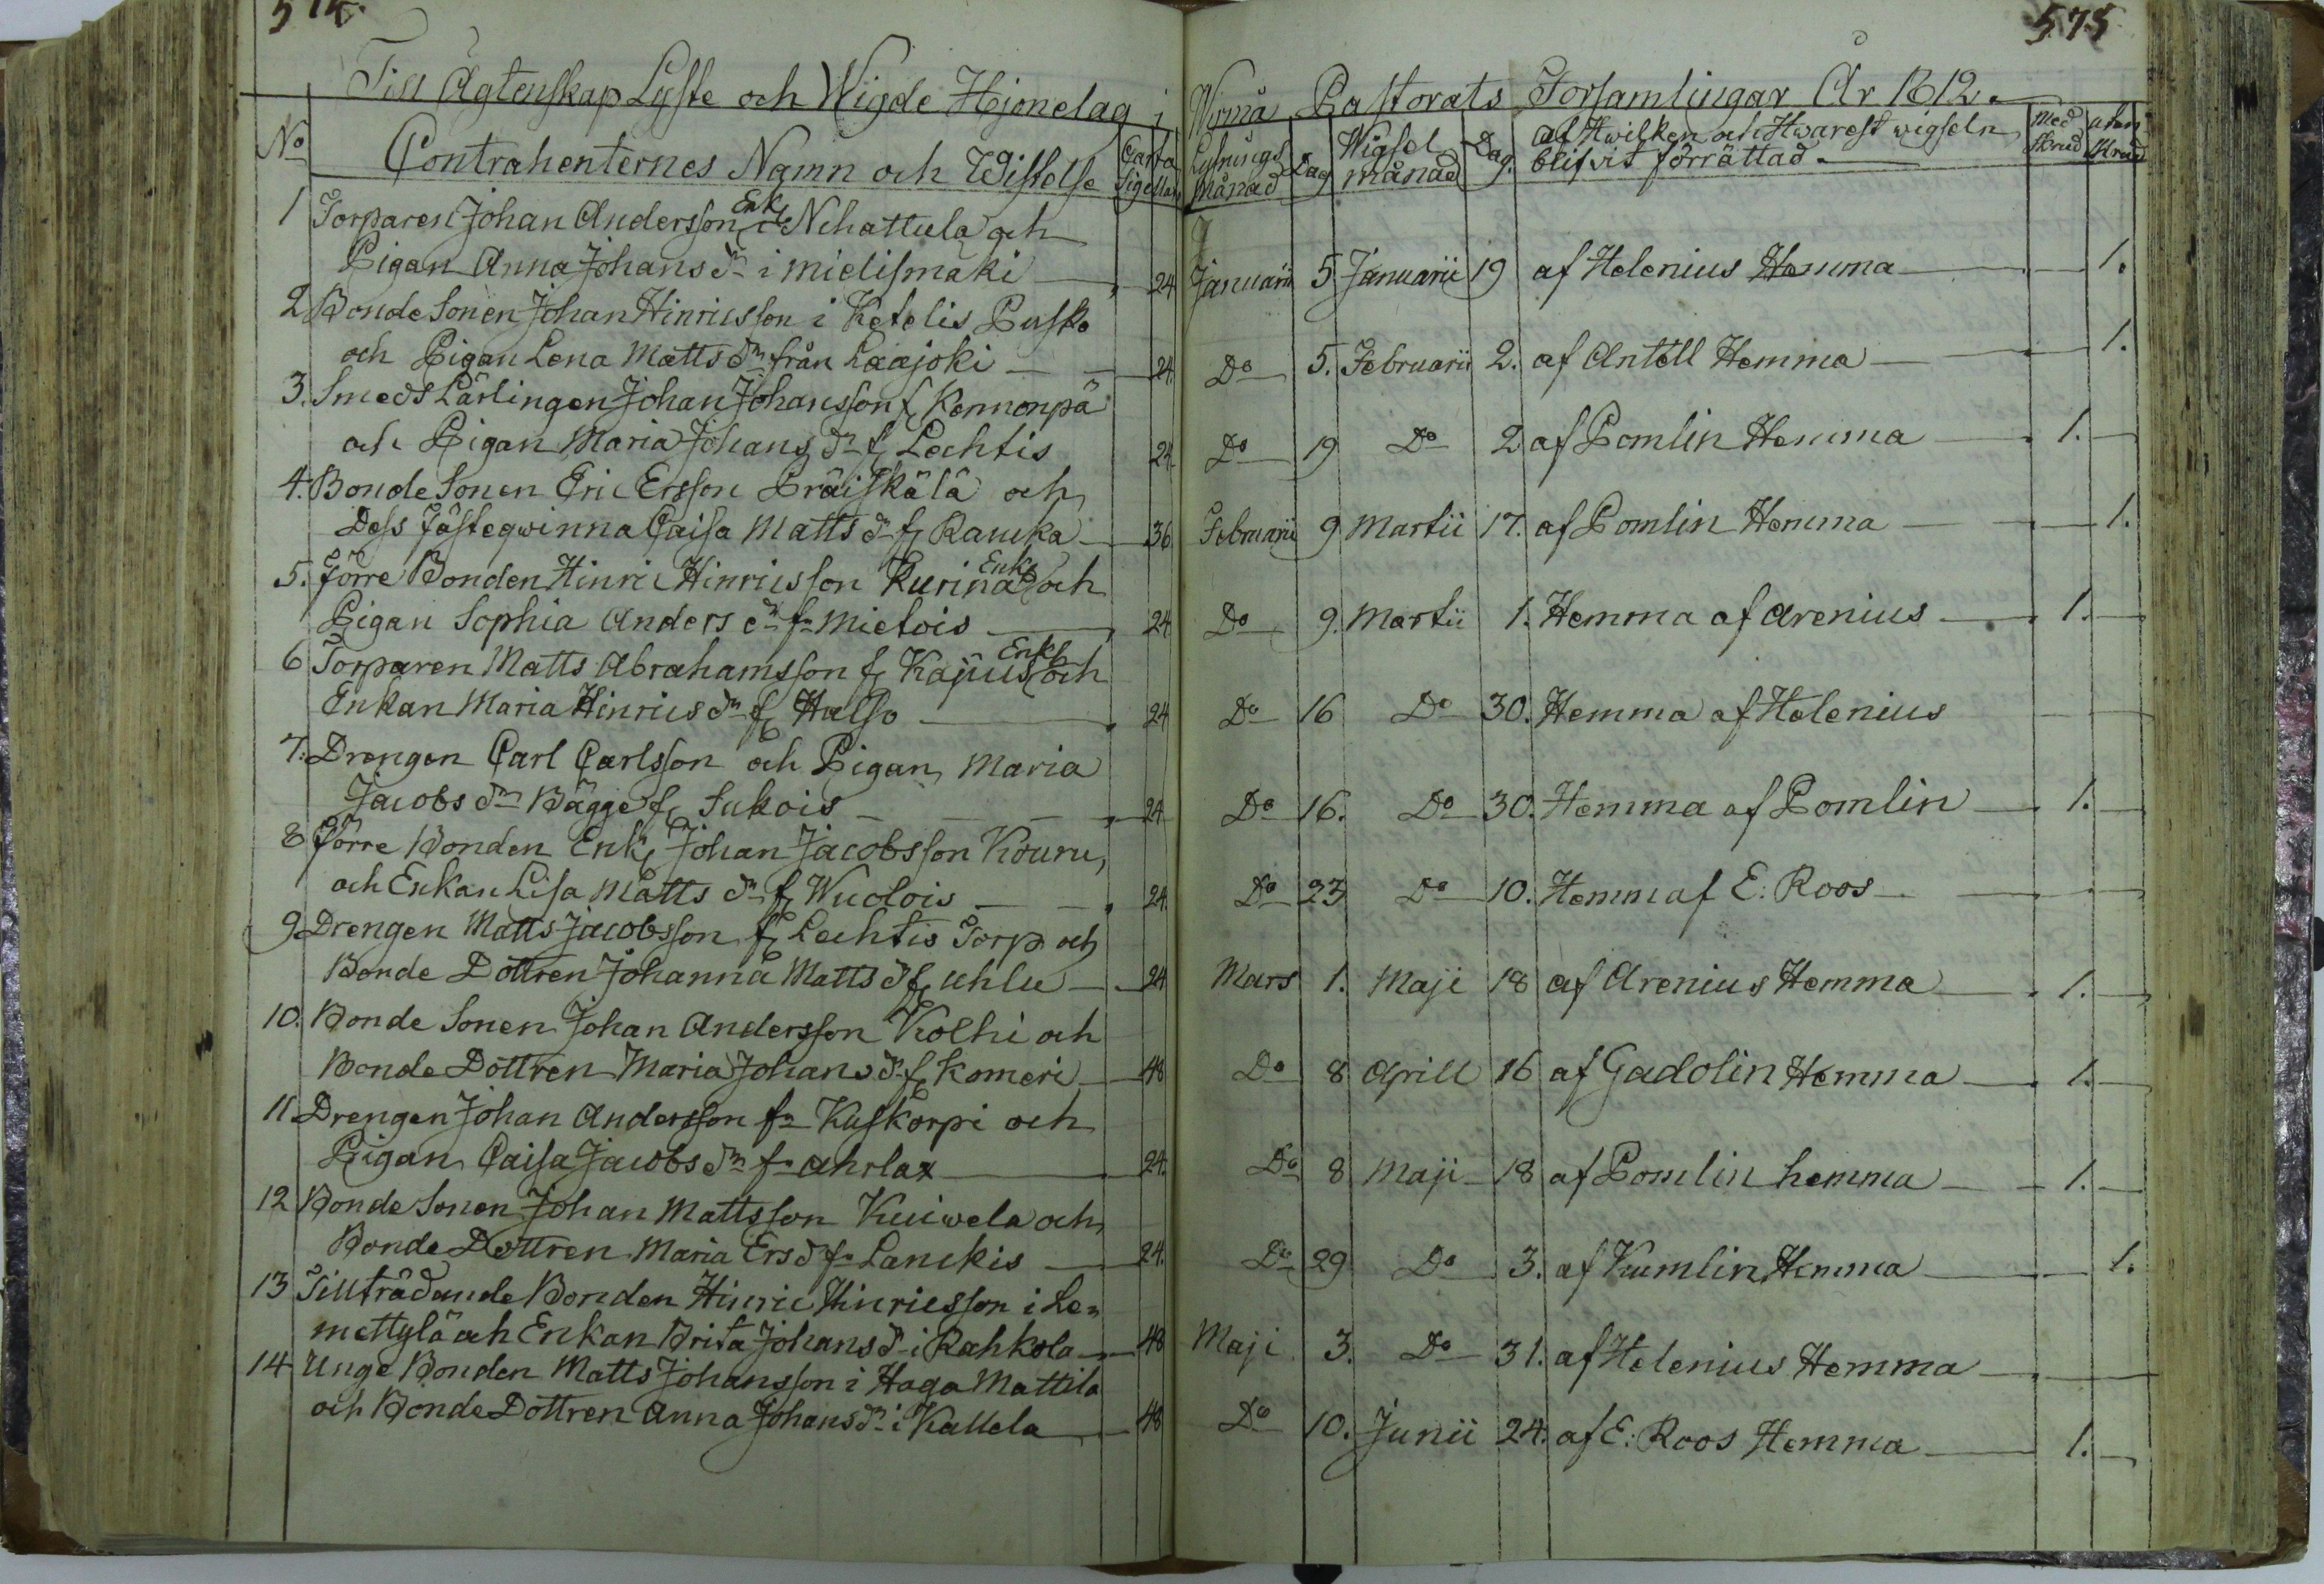 574.
Till Ägtenskap Lyste och Wigde Hjonelag i
No
Contrahenternes Namn och Wistelse
Carta Sigillata
1 Torparen Johan Andersson Enkl i Nihattula och
Pigan Anna Johans dr i Mielismäki 24
2 Bonde Sonen Johan Hinricsson i Ketelis Puske
och Pigan Lena Matts dr från Laajoki 24.
3. Smeds Lärlingen Johan Johansson f Kennonpä
och Pigan Maria Johans dr f Lechtis 24.
4. Bonde Sonen Eric Ersson Präiskälä och
Dess Fästeqwinna Caisa Matts dr f Raucka 36
5. Förre Bonden Hinric Hinricsson Kurina Enkl och
Pigan Sophia Anders dr fr Mietois 24
6 Torparen Matts Abrahamsson f Kajius Enkl och
Enkan Maria Hinrics dr f Halso 24
7. Drengen Carl Carlsson och Pigan Maria
Jacobs dr Bägge f Sukois 24
8 Förre Bonden Enkl Johan Jacobsson Kouru,
och Enkan Lisa Matts dr f Wuolois 24.
9. Drengen Matts Jacobsson f Lechtis Torp och
Bonde Dottren Johanna Matts d f Uhlu 24
10. Bonde Sonen Johan Andersson Kolhi och
Bonde Dottren Maria Johans dr f Komeri 48
11 Drengen Johan Andersson fr Kaskorpi och
Pigan Caisa Jacobs dr fr Ahrlax 24.
12 Bonde Sonen Johan Mattsson Kuiwela och
Bonde Dottren Maria Ers d fr Lanckis 24.
13 Tillträdande Bonden Hinric Hinricsson i Le=
mettylä och Enkan Brita Johans d i Rahkola 48
14 Unge Bonden Matts Johansson i Haga Mattila
och Bonde Dottren Anna Johans dr i Kallela 48
575
Wirmå Pastorats Församlingar År 1812.
Lysnings Månad
Dag
Wigsel månad
Dag.
Af Hwilken och Hwarest wigseln
blifvit förrättad.
Med Skrud
utan Skrud
Januarii 5 Januarii 19 af Helenius Hemma 1.
Do 5. Februarii 2. af Antell Hemma 1.
Do 19 Do 2 af Pomlin Hemma 1.
Februarii 9 Martii 17. af Pomlin Hemma 1.
Do 9. Martii 1. Hemma af Arenius 1.
Do 16 Do 30. Hemma af Helenius
Do 16. Do 30. Hemma af Pomlin 1.
Do 23 Do 10. Hemm af E: Roos
Mars 1. Maji 18 af Arenius Hemma 1.
Do 8 Aprill 16 af Gadolin Hemma 1.
Do 8 Maji 18 af Pomlin hemma 1.
Do 29 Do 3. af Kumlin Hemma 1.
Maji 3. Do 31. af Helenius Hemma
Do 10. Junii 24. af E: Roos Hemma 1.